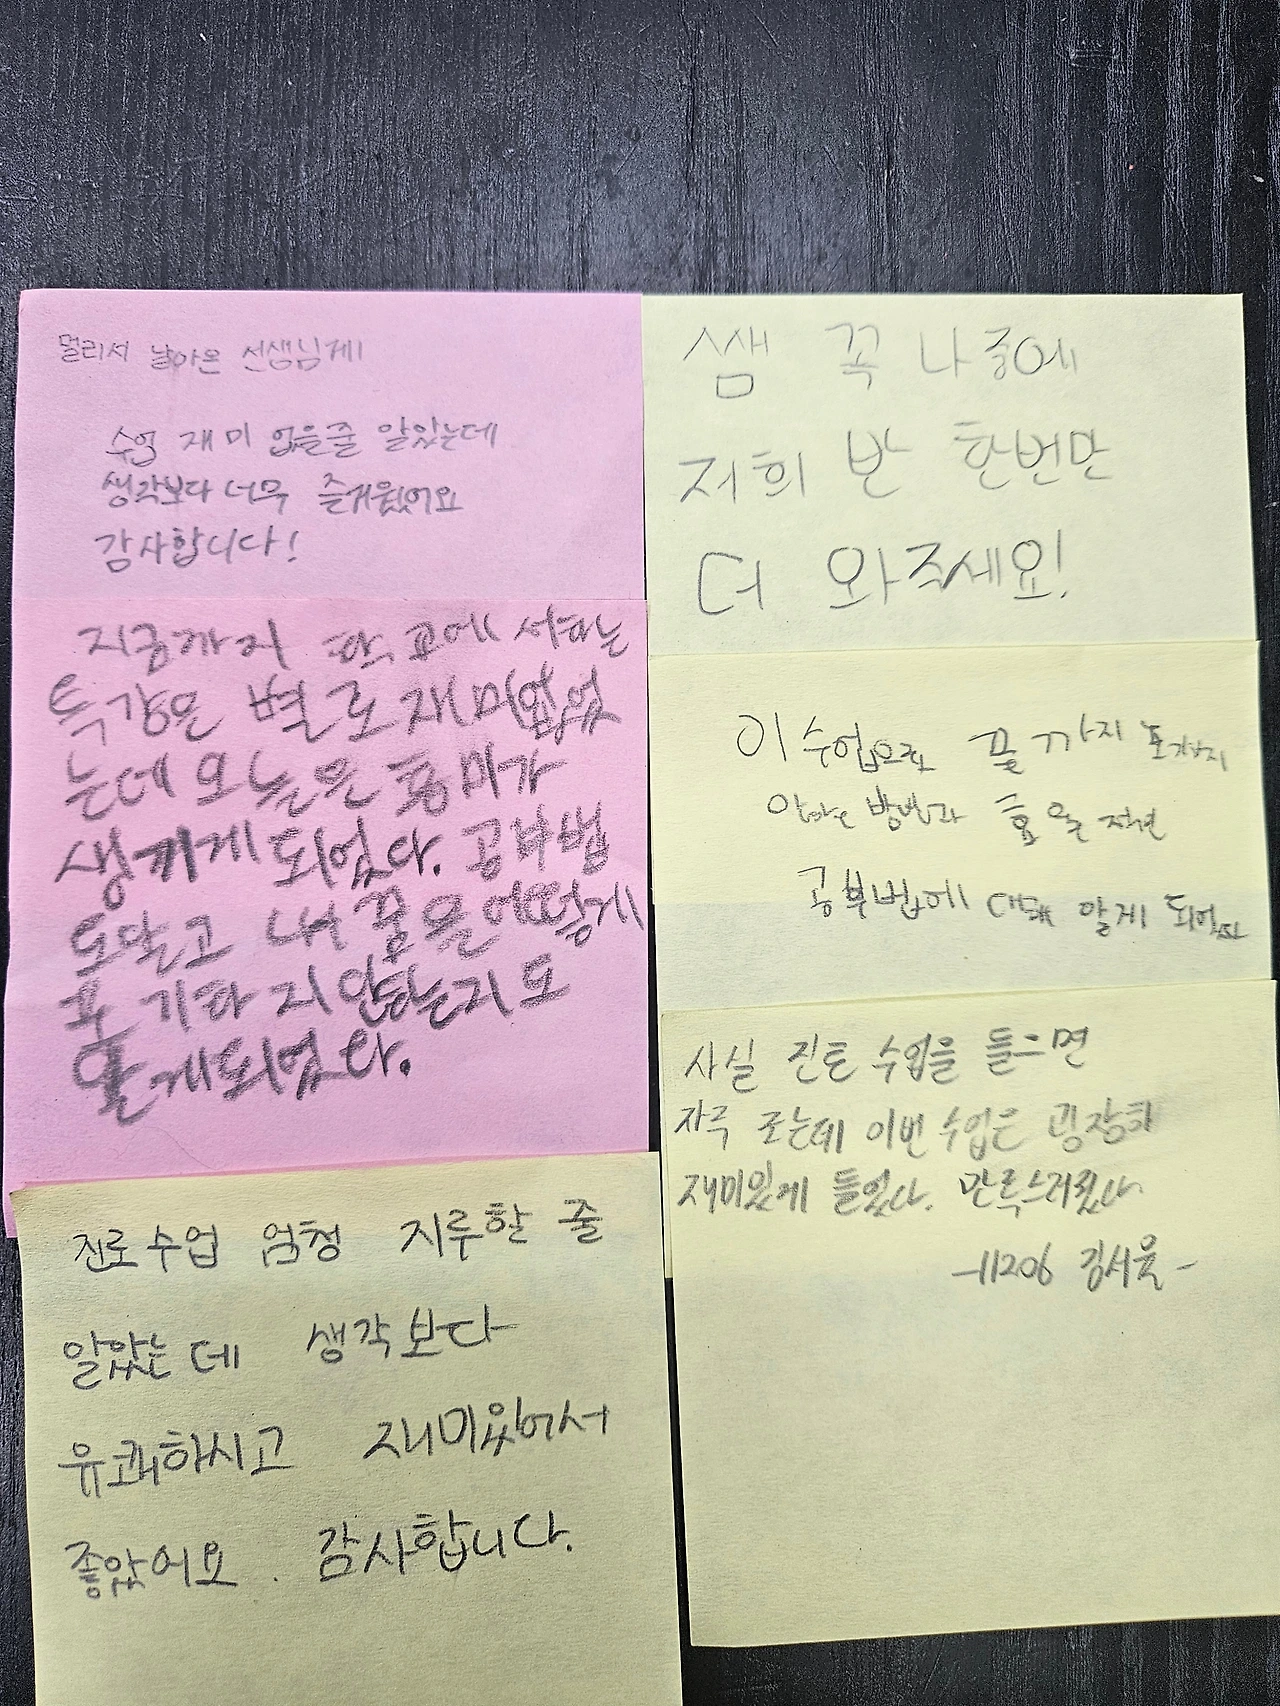 멀리서 날아온 선생님께
수업 재미 없을줄 알았는데
생각보다 너무 즐거웠어요
감사합니다!
지금까지 학교에서 하는
특강은 별로 재미없었
는데 오늘은 흥미가
생기게 되었다. 공부법
도 알고 내 꿈을 어떻게
포기하지 안하는지도
알게되었다.
진로수업 엄청 지루할 줄
알았는데 생각보다
유쾌하시고 재미있어서
좋았어요. 감사합니다.
쌤 꼭 나중에
저희 반 한번만
더 와주세요!
이 수업으로 끝까지 포기하지
않는 방법과 효율적인
공부법에 대해 알게 되었다
사실 진로 수업을 들으면
자주 조는데 이번 수업은 굉장히
재미있게 들었다. 만족스러웠다.
-11206 김서율-